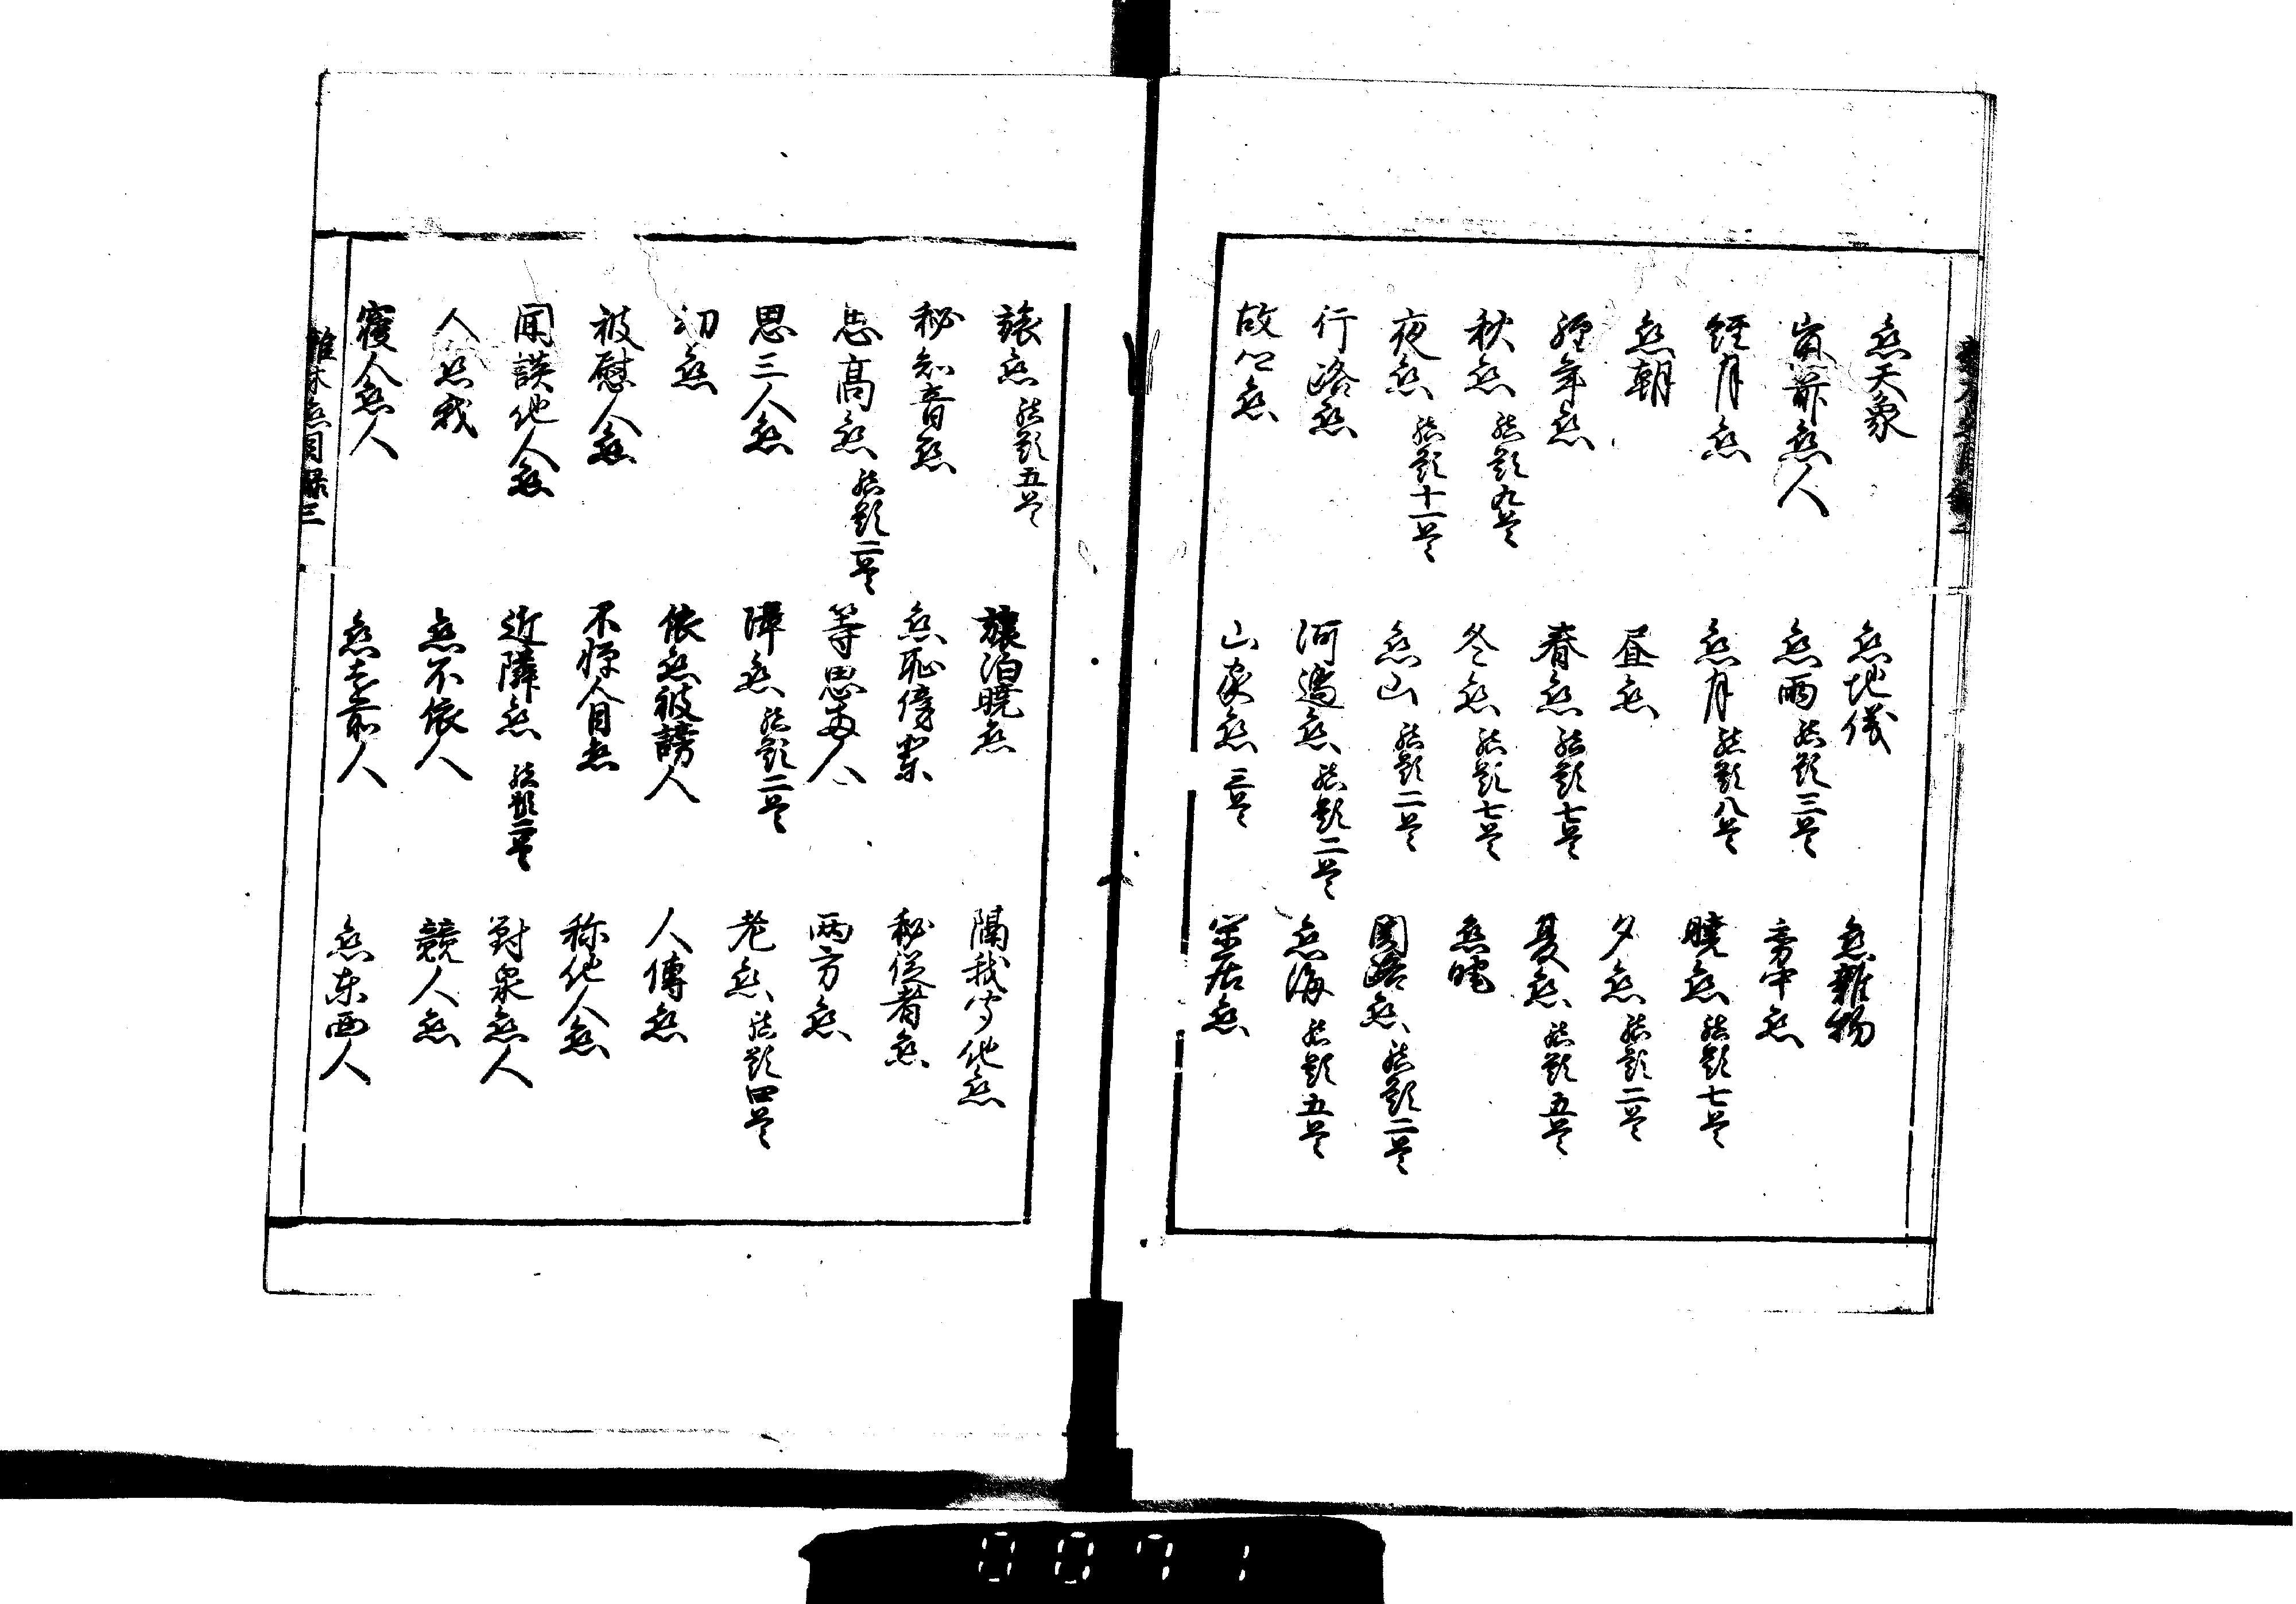 恋天象　恋地儀　恋雑物
恋人　恋雨 結題三首　恋
経月恋　恋月 結題八首　暁恋 結題七首
恋朝　昼恋　夕恋 結題二首
経年恋　春恋 結題七首　夏恋 結題五首
秋恋 結題九首　冬恋 結題七首　恋
夜恋 結題十一首　恋山 結題二首　関路恋 結題二首
行路恋　河邊恋 結題二首　恋海 結題五首
故郷恋　山家恋 三首　閑居恋
旅恋 結題五首　旅泊暁恋　隔我寄他恋
秘知音恋　恋恥傍輩　秘従者恋
忘高恋 結題二首　等思両人　両方恋
思三人恋　障恋 結題二首　老恋 結題四首
切恋　依恋被謗人　人傳恋
被慰人恋　不憚人目恋　称他人恋
聞談他人恋　近隣恋 結題二首　對泉恋人
人恋我　恋不依人　競人恋
寝人恋人　恋去前人　恋東西人
類林恋目録三
0071